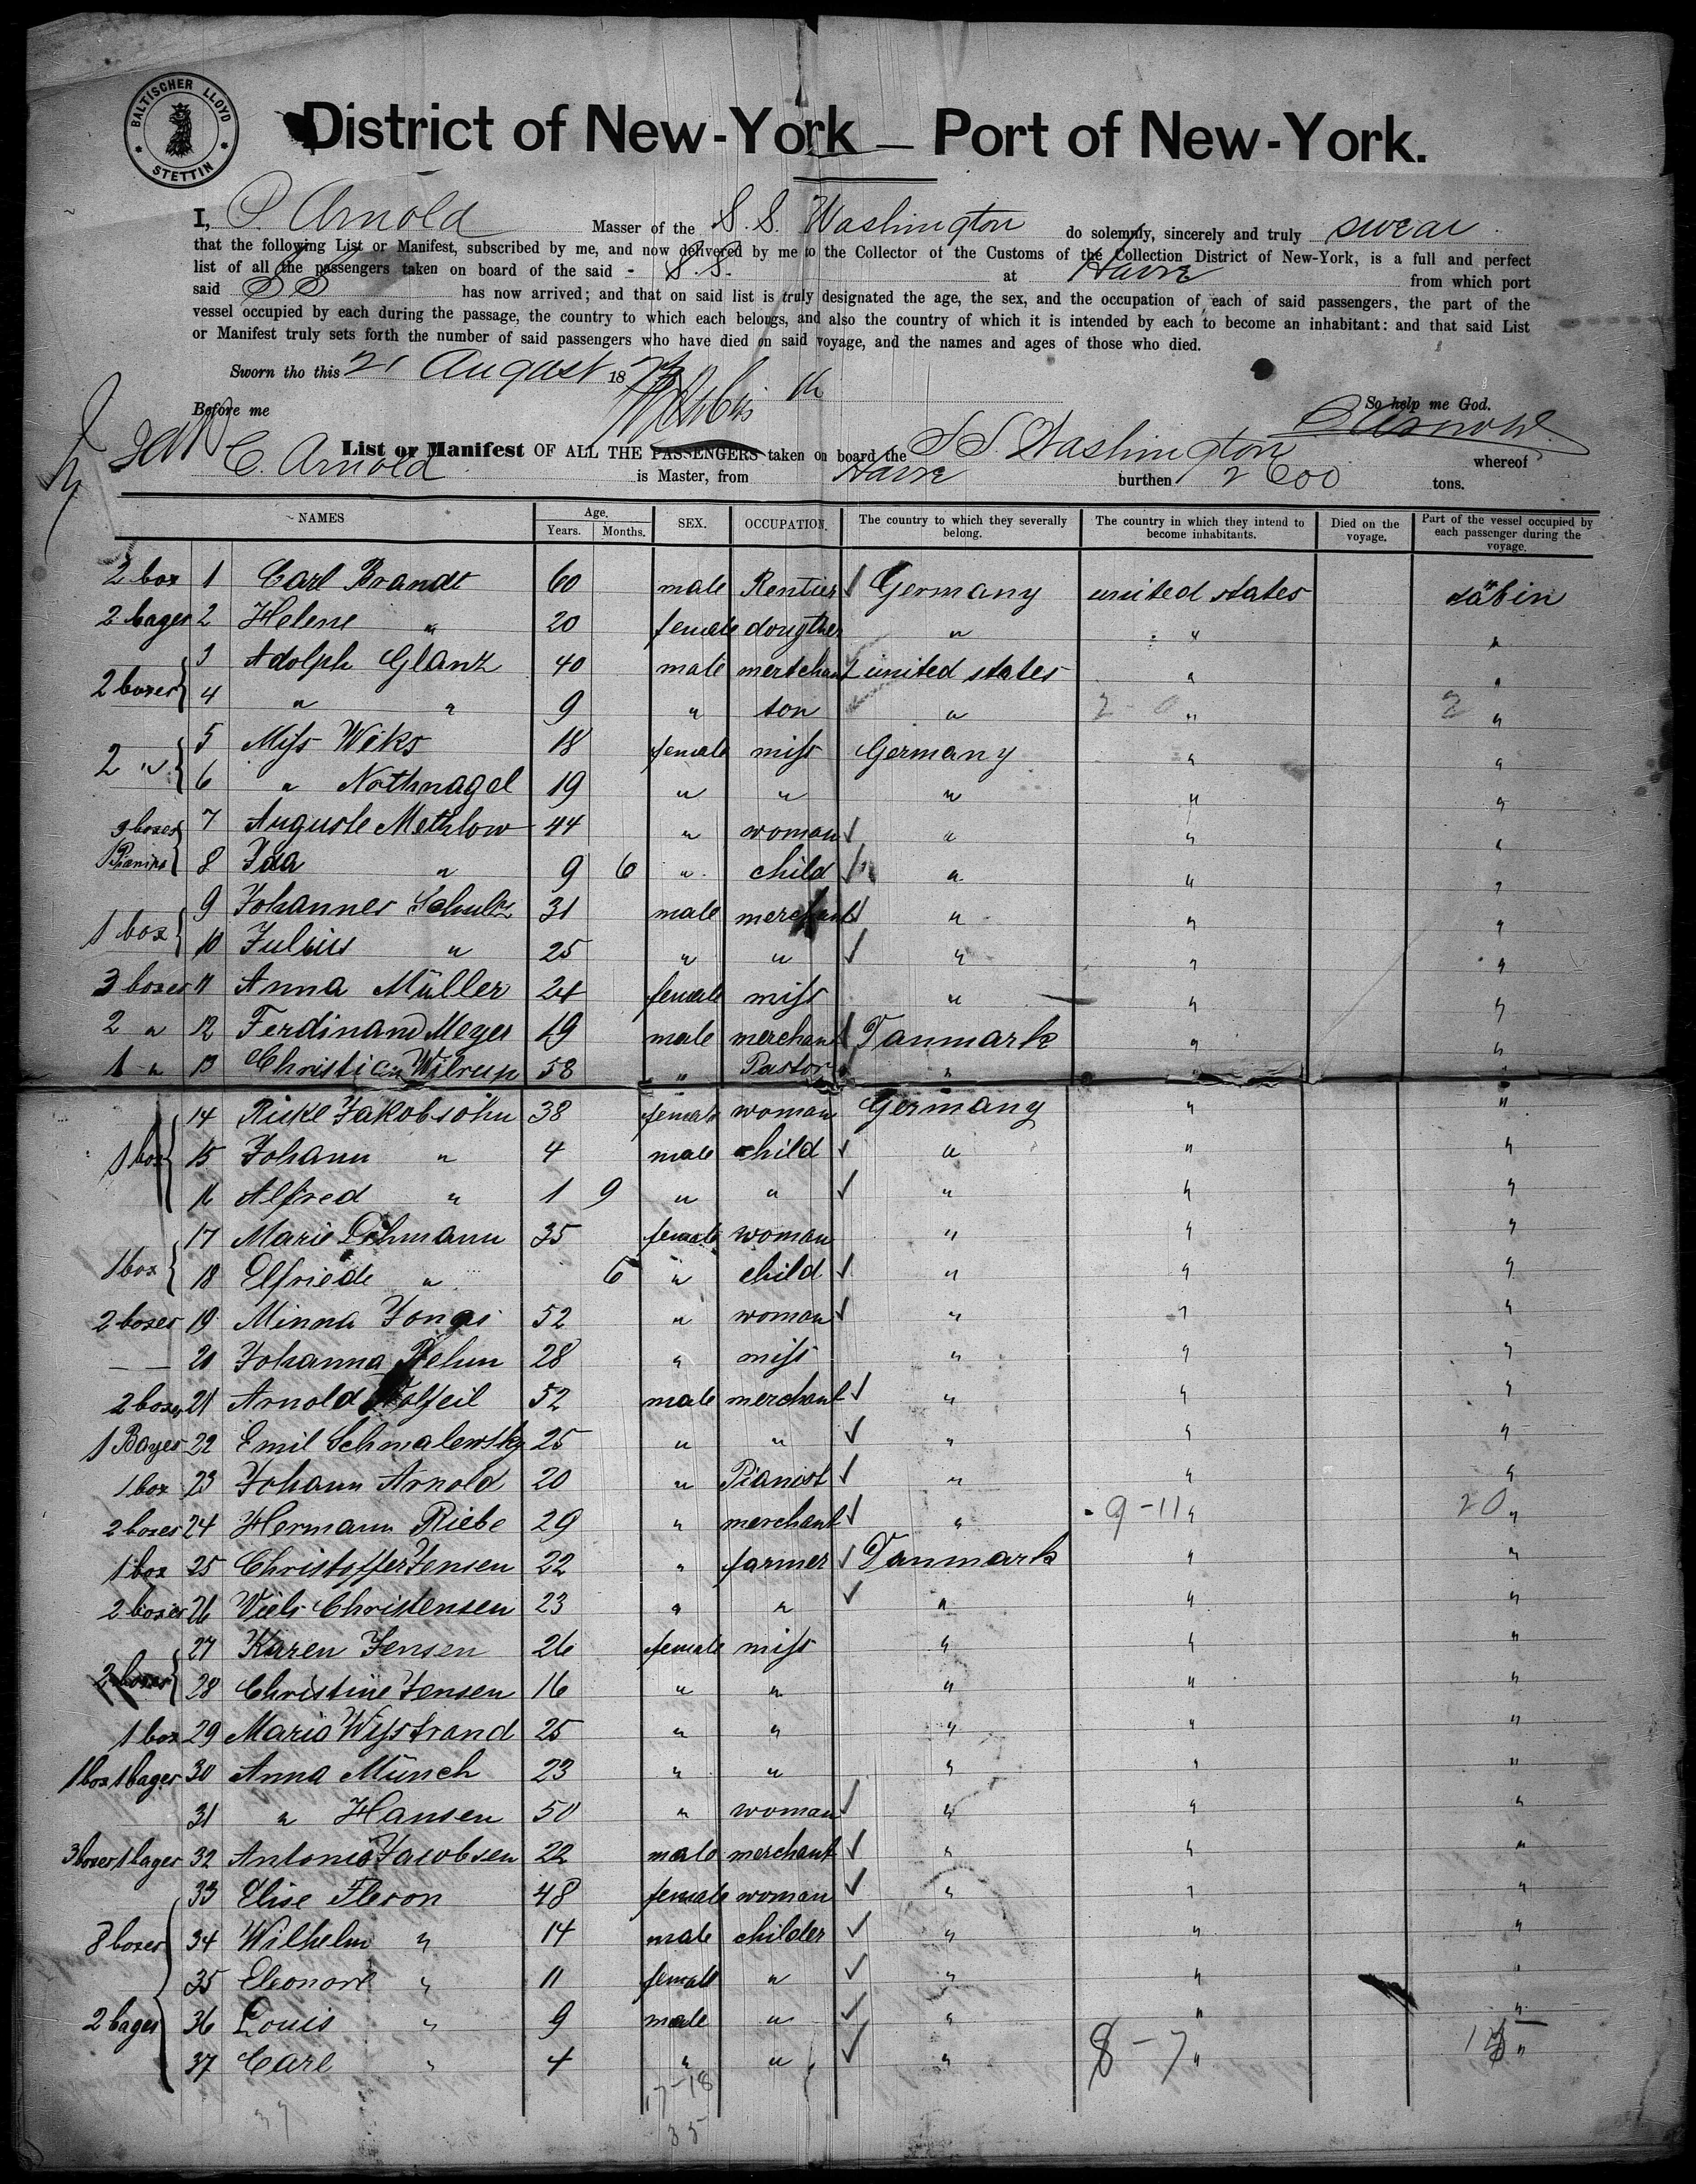 BALTISCHER LLOYD
STETTIN
District of New-York — Port of New-York.
I, C. Arnold Masser of the S. S. Washington do solemnly, sincerely and truly swear
that the following List or Manifest, subscribed by me, and now delivered by me to the Collector of the Customs of the Collection District of New-York, is a full and perfect
list of all the passengers taken on board of the said - S. S. at Havre from which port
said SS has now arrived; and that on said list is truly designated the age, the sex, and the occupation of each of said passengers, the part of the
vessel occupied by each during the passage, the country to which each belongs, and also the country of which it is intended by each to become an inhabitant: and that said List
or Manifest truly sets forth the number of said passengers who have died on said voyage, and the names and ages of those who died.
Sworn tho this 21 August 1873
Before me So help me God.
C Arnold
List or Manifest OF ALL THE PASSENGERS taken on board the S S. Washington whereof
C. Arnold is Master, from Havre burthen 2600 tons.
NAMES Age. Years. Months. SEX. OCCUPATION. The country to which they severally belong. The country in which they intend to become inhabitants. Died on the voyage. Part of the vessel occupied by each passenger during the voyage.
2 box 1 Carl Brandt 60 male Rentier Germany united states cabin
2 bages 2 Helene " 20 female dougther " " "
3 Adolph Glanz 40 male mertchant united states " "
2 boxes 4 " " 9 " son " 2-0 " 2 "
5 Miss Weks 18 female miss Germany " "
2 " 6 " Nothnagel 19 " " " " "
3 boxes 7 Auguste Methlow 44 " woman " " "
1 Pianino 8 Ida " 9 6 " child " " "
9 Johannes Schultz 31 male merchant " " "
1 box 10 Julius " 25 " " " " "
3 boxes 11 Anna Müller 24 female miss " " "
2 " 12 Ferdinand Meyer 19 male merchant Danmark " "
1 " 13 Christian Wilrup 58 " Pastor " " "
14 Rieke Jakobsohn 38 female woman Germany " "
1 box 15 Johann " 4 male child " " "
16 Alfred " 1 9 " " " " "
17 Marie Dehmann 35 female woman " " "
1 box 18 Elfriede " 6 " child " " "
2 boxes 19 Minna Jonas 52 " woman " " "
— — 20 Johanna Behm 28 " miss " " "
2 boxes 21 Arnold 52 male merchant " " "
1 Bages 22 Emil Schmalewsky 25 " " " " "
1 box 23 Johann Arnold 20 " Pianist " " "
2 boxes 24 Hermann Riebe 29 " merchant " 9-11 " 20 "
1 box 25 Christoffer Jensen 22 " farmer Danmark " "
2 boxes 26 Niels Christensen 23 " " " " "
27 Karen Jensen 26 female miss " " "
2 boxes 28 Christine Jensen 16 " " " " "
1 box 29 Maria Wisstrand 25 " " " " "
1 box 1 bages 30 Anna Münch 23 " " " " "
31 " Hansen 50 " woman " " "
3 boxes 1 bages 32 Antonio Jacobsen 22 male merchant " " "
33 Elise Fleron 48 female woman " " "
8 boxes 34 Wilhelm " 14 male childer " " "
35 Eleonore " 11 female " " " "
2 bages 36 Louis " 9 male " " " "
37 Carl " 4 " " " 8-7 " 15 "
37 17-18
35